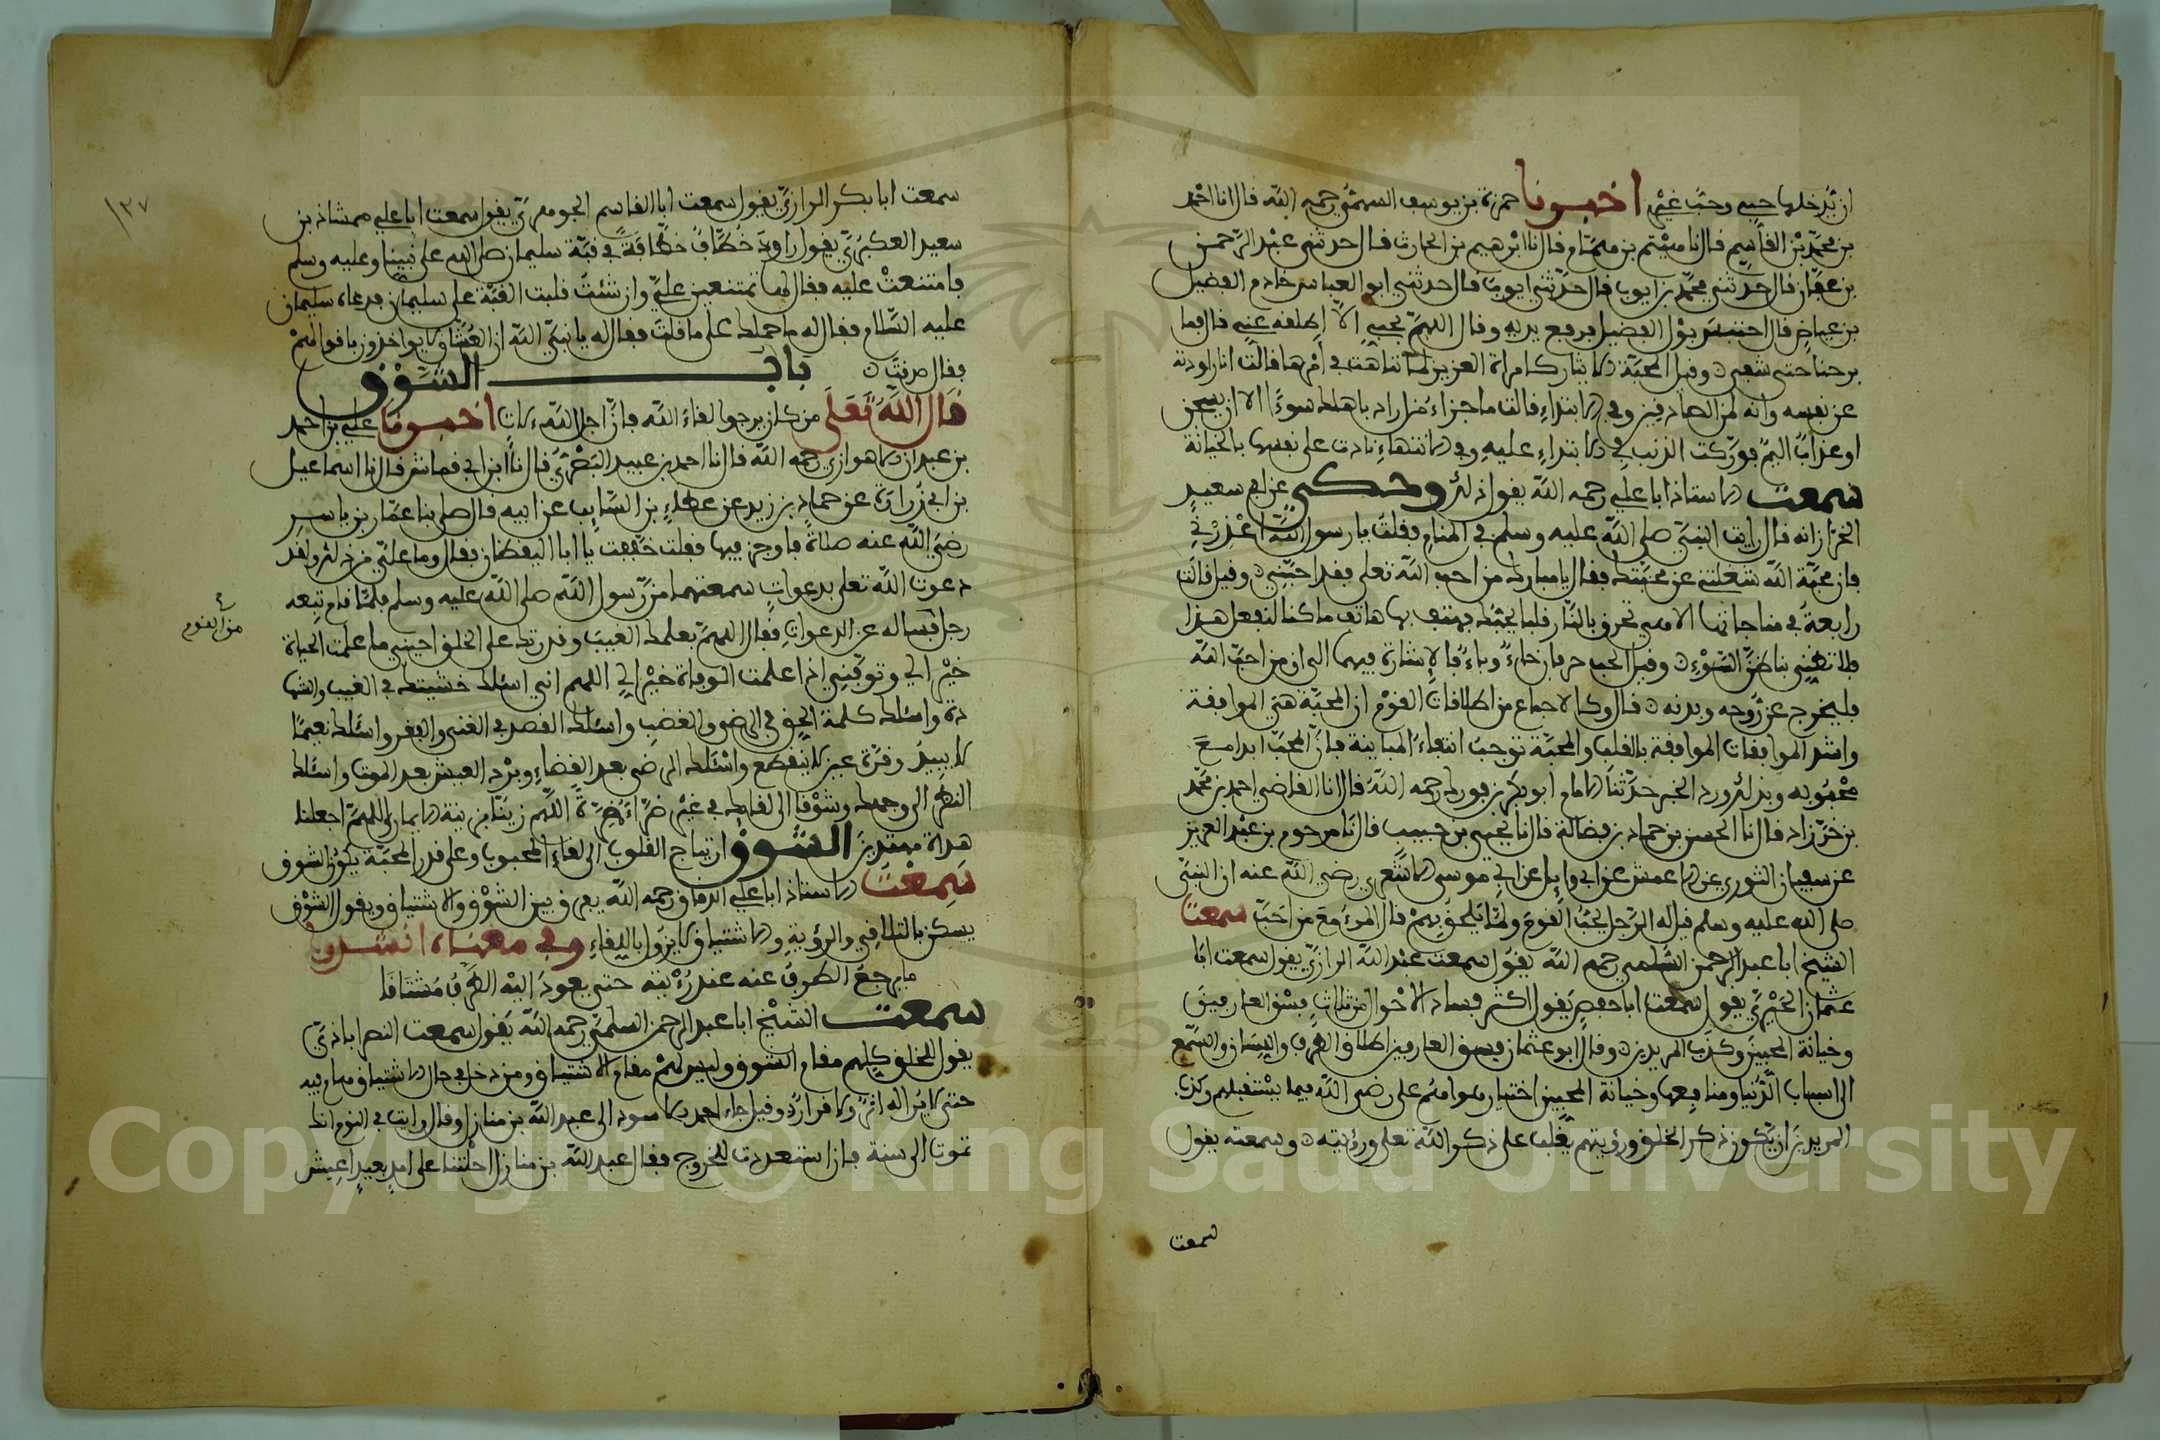 ان يدخلها حبي وحب غيري اخبرنا حمزة بن يوسف السهمي رحمه الله قال انا احمد
بن محمد بن القاسم قال نا ميثم بن همام قال نا ابرهيم بن الحارث قال حدثني عبد الرحمن
بن عفان قال حدثني محمد بن ايوب قال حدثني ابو العباس خادم الفضيل
بن عياض قال احتبس بول الفضيل فرفع يديه وقال اللهم بحبي الا اطلقته عني قال فما
برحنا حتى شفي وقيل المحبة الايثار كامراة العزيز لما تناهت في امرها قالت انا راودته
عن نفسه وانه لمن الصادقين وفي الابتداء قالت ما جزاء من اراد باهلك سوءا الا ان يسجن
او عذاب اليم فورّكت الذنب في الابتداء عليه وفي الانتهاء نادت على نفسها بالخيانة
سمعت الاستاذ ابا علي رحمه الله يقول ذلك وحكي عن ابي سعيد
الخراز انه قال رايت النبي صلى الله عليه وسلم في المنام فقلت يا رسول الله اعذرني
فان محبة الله شغلتني عن محبتك فقال يا مبارك من احب الله تعلى فقد احبني وقيل قالت
رابعة في مناجاتها الاهي تحرق بالنار قلبا يحبك فهتف بها هاتف ما كنا لنفعل هذا
فلا تظني بنا ظن السوء وقيل الحب حرفان حاء وباء فالاشارة فيهما الى ان من احب الله
فليخرج عن روحه وبدنه قال وكالاجماع من اطلاقات القوم ان المحبة هي الموافقة
واشد الموافقات الموافقة بالقلب والمحبة توجب انتفاء المباينة فان المحب ابدا مع
محبوبه وبذلك ورد الخبر حدثنا الامام ابو بكر بن فورك رحمه الله قال انا القاضي احمد بن محمد
بن خرزاد قال نا الحسن بن حماد بن فضالة قال نا يحيى بن حبيب قال نا مرحوم بن عبد العزيز
عن سفيان الثوري عن الاعمش عن ابي وايل عن ابي موسى الاشعري رضي الله عنه ان النبي
صلى الله عليه وسلم قيل له الرجل يحب القوم ولما يلحق بهم قال المرء مع من احب سمعت
الشيخ ابا عبد الرحمن السلمي رحمه الله يقول سمعت عبد الله الرازي يقول سمعت ابا
عثمان الحيري يقول سمعت ابا حفص يقول اكثر فساد الاحوال من ثلاث فسق العارفين
وخيانة المحبين وكذب المريدين وقال ابو عثمان فسق العارفين اطلاق الطرف واللسان والسمع
الى اسباب الدنيا ومنافعها وخيانة المحبين اختيار هواهم على رضى الله فيما يستقبلهم وكذب
المريدين ان يكون ذكر الخلق ورؤيتهم يغلب على ذكر الله تعلى ورؤيته وسمعته يقول
سمعت
١٣٧
سمعت ابا بكر الرازي يقول سمعت ابا القاسم الجوهري يقول سمعت ابا علي ممشاذ بن
سعيد العكبري يقول راود خطاف خطافة في قبة سليمان صلى الله على نبينا وعليه وسلم
فامتنعت عليه فقال لها تمتنعين علي وان شئت قلبت القبة على سليمان فدعاه سليمان
عليه السلام فقال له ما حملك على ما قلت فقال له يا نبي الله ان العشاق لا يواخذون باقوالهم
فقال صدقت باب الشوق
قال الله تعلى من كان يرجوا لقاء الله فان اجل الله لات اخبرنا علي بن احمد
بن عبدان الاهوازي رحمه الله قال انا احمد بن عبيد البصري قال نا ابن ابي قماش قال نا اسماعيل
بن ابي زرارة عن حماد بن زيد عن عطاء بن السايب عن ابيه قال صلى بنا عمار بن ياسر
رضي الله عنه صلاة فاوجز فيها فقلت خففت يا ابا اليقظان فقال وما علي من ذلك ولقد
دعوت الله تعلى بدعوات سمعتها من رسول الله صلى الله عليه وسلم فلما قام تبعه
رجل فساله عن الدعوات فقال اللهم بعلمك الغيب وقدرتك على الخلق احيني ما علمت الحياة
من القوم
خيرا لي وتوفني اذا علمت الوفاة خيرا لي اللهم اني اسئلك خشيتك في الغيب والشها
دة واسئلك كلمة الحق في الرضى والغضب واسئلك القصد في الغنى والفقر واسئلك نعيما
لا يبيد وقرة عين لا تنقطع واسئلك الرضى بعد القضاء وبرد العيش بعد الموت واسئلك
النظر الى وجهك وشوقا الى لقائك في غير ضراء مضرة اللهم زينا بزينة الايمان اللهم اجعلنا
هداة مهتدين الشوق ارتياح القلوب الى لقاء المحبوب وعلى قدر المحبة يكون الشوق
سمعت الاستاذ ابا علي الدقاق رحمه الله يفرق بين الشوق والاشتياق ويقول الشوق
يسكن بالتلاقي والرؤية والاشتياق لا يزول باللقاء وفي معناه انشدوا
ما يرجع الطرف عنه عند رؤيته حتى يعود اليه الطرف مشتاقا
سمعت الشيخ ابا عبد الرحمن السلمي رحمه الله يقول سمعت النصراباذي
يقول للخلق كلهم مقام الشوق وليس لهم مقام الاشتياق ومن دخل في حال الاشتياق هام فيه
حتى لا يرا له اثر ولا قرار وقيل جاء احمد بن الاسود الى عبد الله بن منازل وقال رايت في النوم انك
تموت الى سنة فان استعددت للخروج فقال عبد الله بن منازل اجلتنا على امد بعيد اعيش